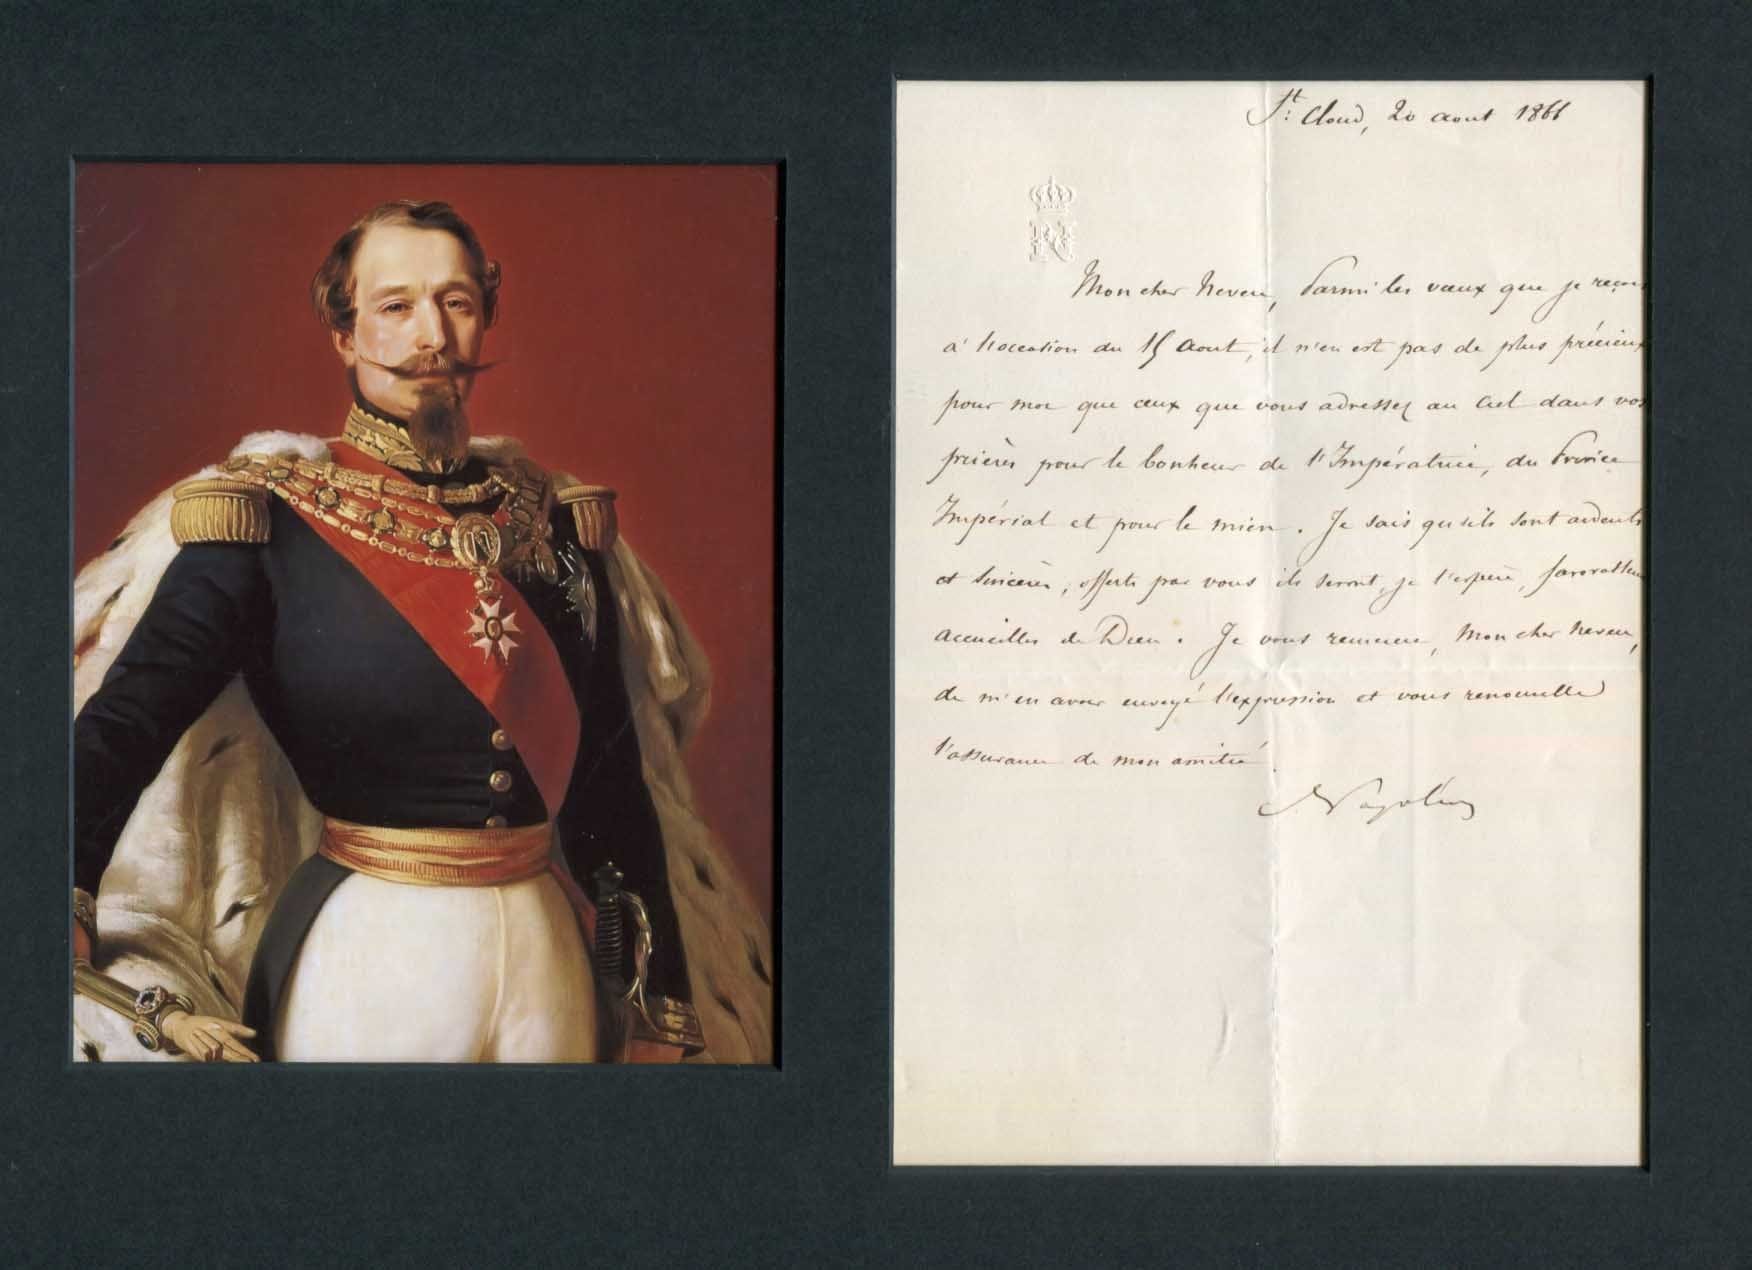 St: Cloud, 20 aout 1866
N
Mon cher Neveu, Parmi les vœux que je reçois
à l'occasion du 15 Aout, il n'en est pas de plus précieux
pour moi que ceux que vous adressez au Ciel dans vos
prières pour le bonheur de l'Impératrice, du Prince
Impérial et pour le mien. Je sais qu'ils sont ardents
et sincères; offerts par vous ils seront, je l'espère, favorablement
accueillis de Dieu. Je vous remercie, Mon cher Neveu,
de m'en avoir envoyé l'expression et vous renouvelle
l'assurance de mon amitié.
Napoléon